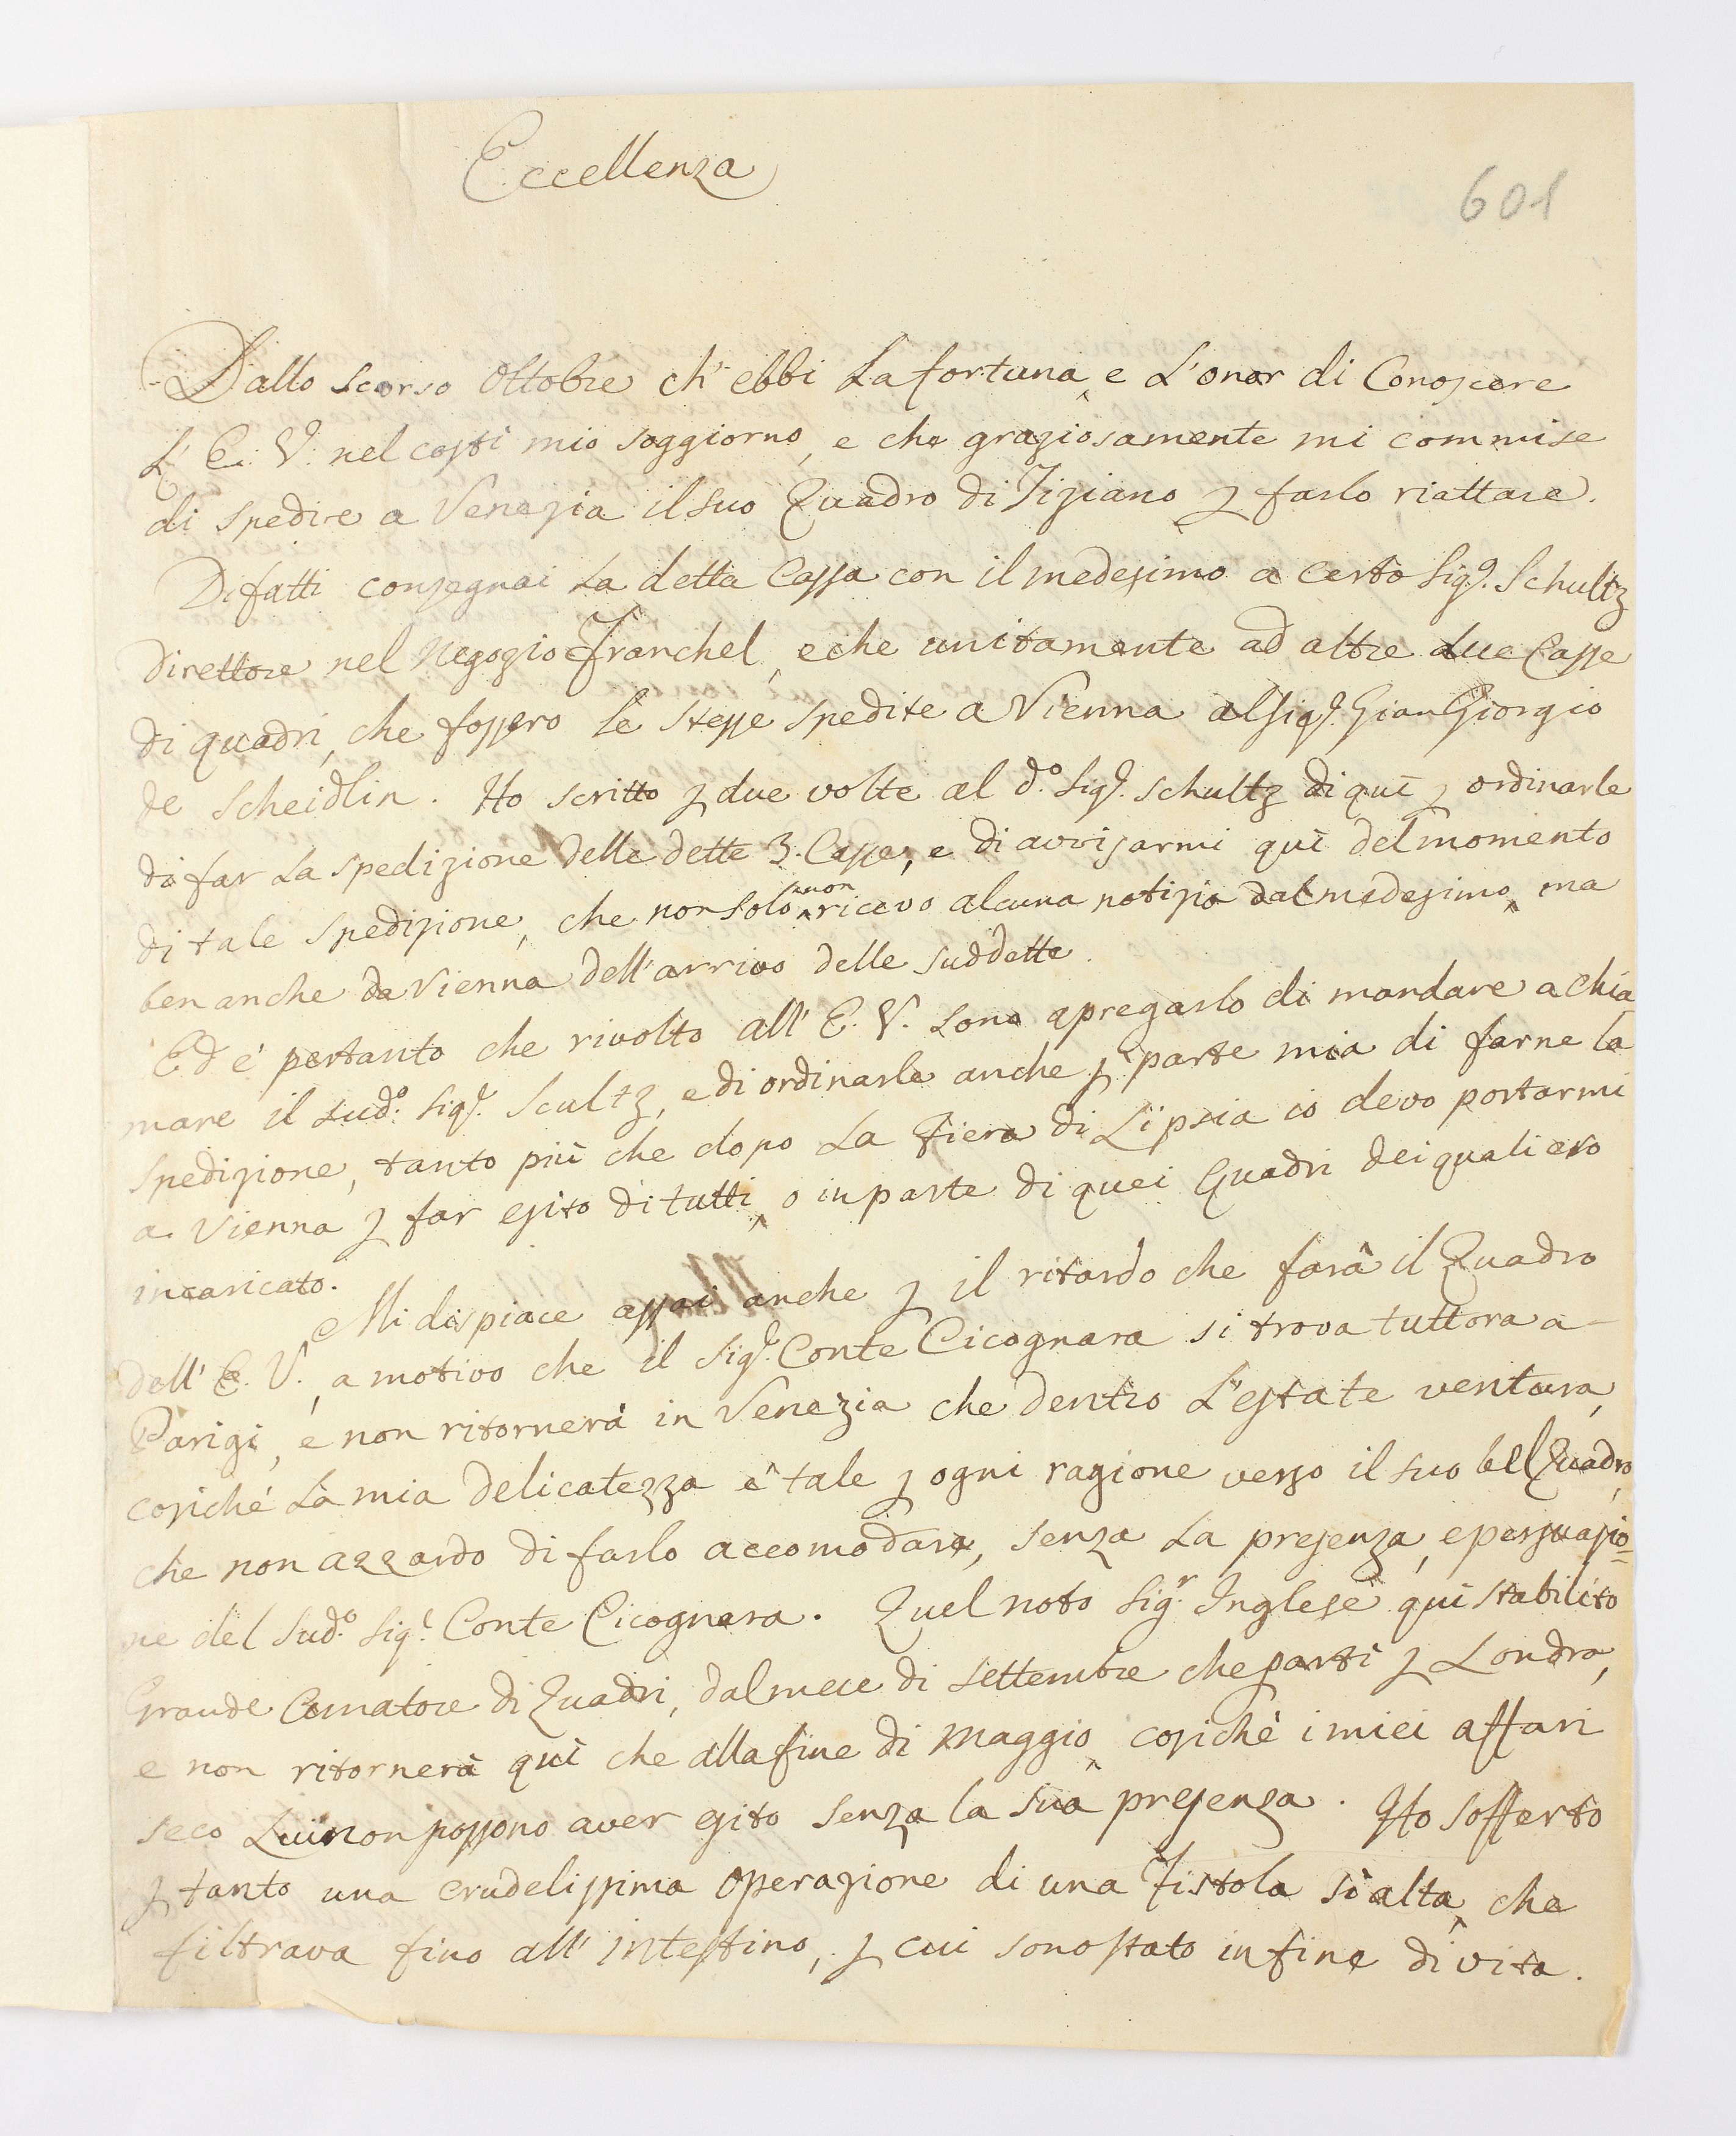 Eccellenza
601
Dallo scorso Ottobre ch' ebbi La fortuna, e L'onor di Conoscere
L' E. V. nel costì mio soggiorno, e che graziosamente mi commise
di spedire a Venezia il suo Quadro di Tiziano p farlo riattare.
Difatti consegnai La detta Cassa con il medesimo a certo Sigr. Schultz
Direttore nel Negozio Franchel, e che unitamente ad altre due Casse
di quadri, che fossero le stesse spedite a Vienna al Sigr. Gian Giorgio
de Scheidlin. Ho scritto p due volte al do. Sigr. Schultz di quì p ordinarle
di far La spedizione delle dette 3. Casse, e di avvisarmi quì del momento
di tale spedizione, che non solo non ricevo alcuna notizia dal medesimo, ma
ben anche da Vienna dell'arrivo delle suddette.
Ed è pertanto che rivolto all' E. V. sono a pregarlo di mandare a chia
mare il sudo: Sigr. Scultz, e di ordinarle anche p parte mia di farne la
spedizione, tanto più che dopo La Fiera di Lipsia io devo portarmi
a Vienna p far esito di tutti, o in parte di quei Quadri dei quali ero
incaricato.
Mi dispiace assai anche p il ritardo che farà il Quadro
dell' E. V., a motivo che il Sigr. Conte Cicognara si trova tuttora a
Parigi, e non ritornerà in Venezia che dentro L'estate ventura,
cosiché La mia delicatezza è tale p ogni ragione verso il suo bel Quadro,
che non azzardo di farlo accomodare, senza La presenza, e persuasio=
ne del Sudo. Sigr. Conte Cicognara. Quel noto Sigr. Inglese quì stabilito
Grande Amatore di Quadri, dal mese di Settembre che partì p Londra,
e non ritornerà quì che alla fine di Maggio, cosichè i miei affari
seco Lui non possono aver esito senza la sua presenza. Ho sofferto
p tanto una crudelissima operazione di una Fistola sì alta, che
filtrava fino all' intestino, p cui sono stato in fine di vita.